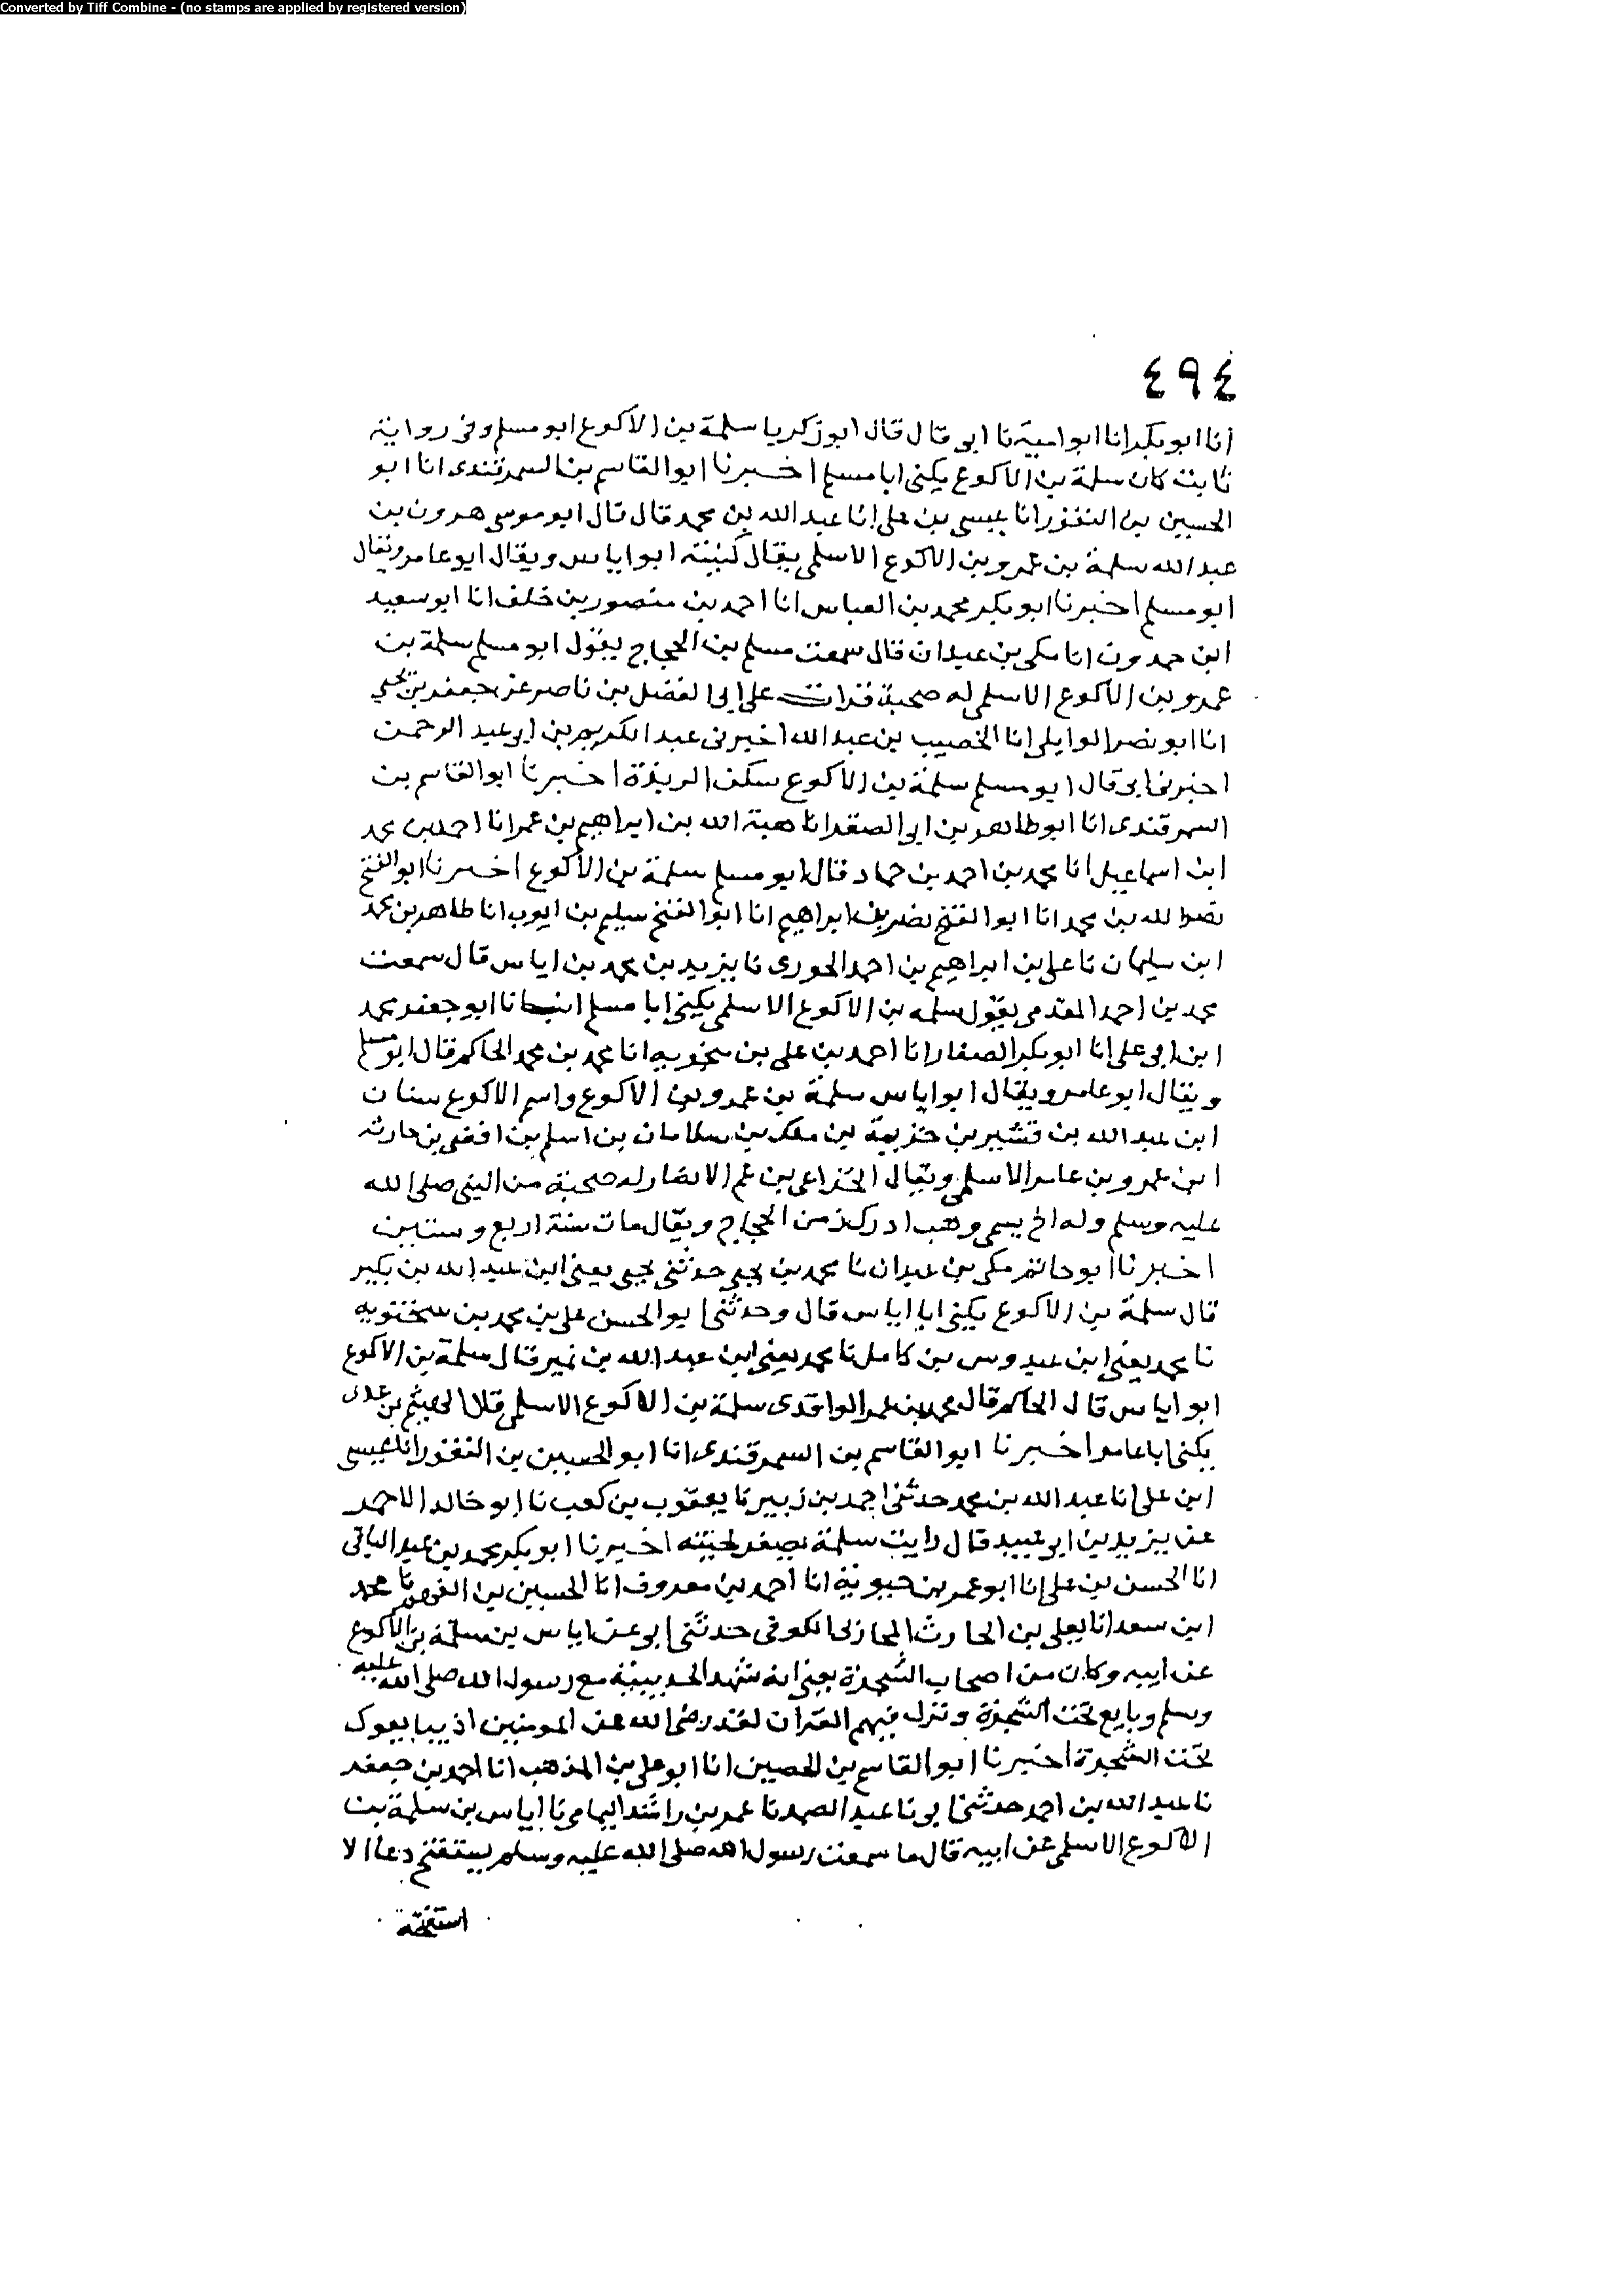 Converted by Tiff Combine - (no stamps are applied by registered version)
٤٩٤
أنا ابو بكر انا ابو امية نا ابى قال قال ابو زكريا سلمة بن الاكوع ابو مسلم وفى رواية
ثابت كان سلمة بن الاكوع يكنى ابا مسلم اخبرنا ابو القاسم بن السمرقندى انا ابو
الحسين بن النقور انا عيسى بن على انا عبد الله بن محمد قال قال ابو موسى هرون بن
عبد الله سلمة بن عمرو بن الاكوع الاسلمى يقال كنيته ابو اياس ويقال ابو عامر ويقال
ابو مسلم اخبرنا ابو بكر محمد بن العباس انا احمد بن منصور بن خلف انا ابو سعيد
ابن حمدون انا مكى بن عبدان قال سمعت مسلم بن الحجاج يقول ابو مسلم سلمة بن
عمرو بن الاكوع الاسلمى له صحبة قرات على ابى الفضل بن ناصر عن جعفر بن يحيى
انا ابو نصر الوايلى انا الخصيب بن عبد الله اخبرنى عبد الكريم بن ابى عبد الرحمن
اخبرنى ابى قال ابو مسلم سلمة بن الاكوع سكن الربذة اخبرنا ابو القاسم بن
السمرقندى انا ابو طاهر بن ابى الصقر انا هبة الله بن ابراهيم بن عمر انا احمد بن محمد
ابن اسماعيل انا محمد بن احمد بن حماد قال ابو مسلم سلمة بن الاكوع اخبرنا ابو الفتح
نصر الله بن محمد انا ابو الفتح نصر بن ابراهيم انا ابو الفتح سليم بن ايوب انا طاهر بن محمد
ابن سليمان نا على بن ابراهيم بن احمد الجورى نا يزيد بن محمد بن اياس قال سمعت
محمد بن احمد المقدمى يقول سلمه بن الاكوع الاسلمى يكنى ابا مسلم انبانا ابو جعفر محمد
ابن ابى على انا ابو بكر الصفار انا احمد بن على بن منجويه انا محمد بن محمد الحاكم قال ابو مسلم
ويقال ابو عامر ويقال ابو اياس سلمة بن عمرو بن الاكوع واسم الاكوع سنان
ابن عبد الله بن قشير بن خزيمة بن ملك بن سلامان بن اسلم بن افقى بن حارثه
ابن عمرو بن عامر الاسلمى ويقال الخزاعى بن عم الانصار له صحبة من النبى صلى الله
عليه وسلم وله اخ يسمى وهب ادرك زمن الحجاج ويقال مات سنة اربع وستين
اخبرنا ابو حاتم مكى بن عبدان نا محمد بن يحيى حدثنى يحيى يعنى ابن عبد الله بن بكير
قال سلمة بن الاكوع يكنى ابا اياس قال وحدثنى ابو الحسن على بن محمد بن سختويه
نا محمد يعنى ابن عبدوس بن كامل نا محمد يعنى ابن عبد الله بن نمير قال سلمة بن الاكوع
ابو اياس قال الحاكم قال محمد بن عمر الواقدى سلمة بن الاكوع الاسلمى قال الهيثم بن عدى
يكنى ابا عامر اخبرنا ابو القاسم بن السمرقندى انا ابو الحسين بن النقور انا عيسى
ابن على انا عبد الله بن محمد حدثنى احمد بن زهير نا يعقوب بن كعب نا ابو خالد الاحمر
عن يزيد بن ابى عبيد قال رايت سلمة يصفر لحيته اخبرنا ابو بكر محمد بن عبد الباقى
انا الحسن بن على انا ابو عمر بن حيوية انا احمد بن معروف انا الحسين بن الفهم نا محمد
ابن سعد انا يعلى بن الحارث المحاربى الكوفى حدثنى ابى عن اياس بن سلمة بن الاكوع
عن ابيه وكان من اصحاب الشجرة يعنى انه شهد الحديبية مع رسول الله صلى الله عليه
وسلم وبايع تحت الشجرة ونزل فيهم القران لقد رضى الله عن المومنين اذ يبايعوك
تحت الشجرة اخبرنا ابو القاسم بن الحصين انا ابو على بن المذهب انا احمد بن جعفر
نا عبد الله بن احمد حدثنى ابى نا عبد الصمد نا عمر بن راشد اليمامى نا اياس بن سلمة بن
الاكوع الاسلمى عن ابيه قال ما سمعت رسول الله صلى الله عليه وسلم يستفتح دعا الا
استفتحه